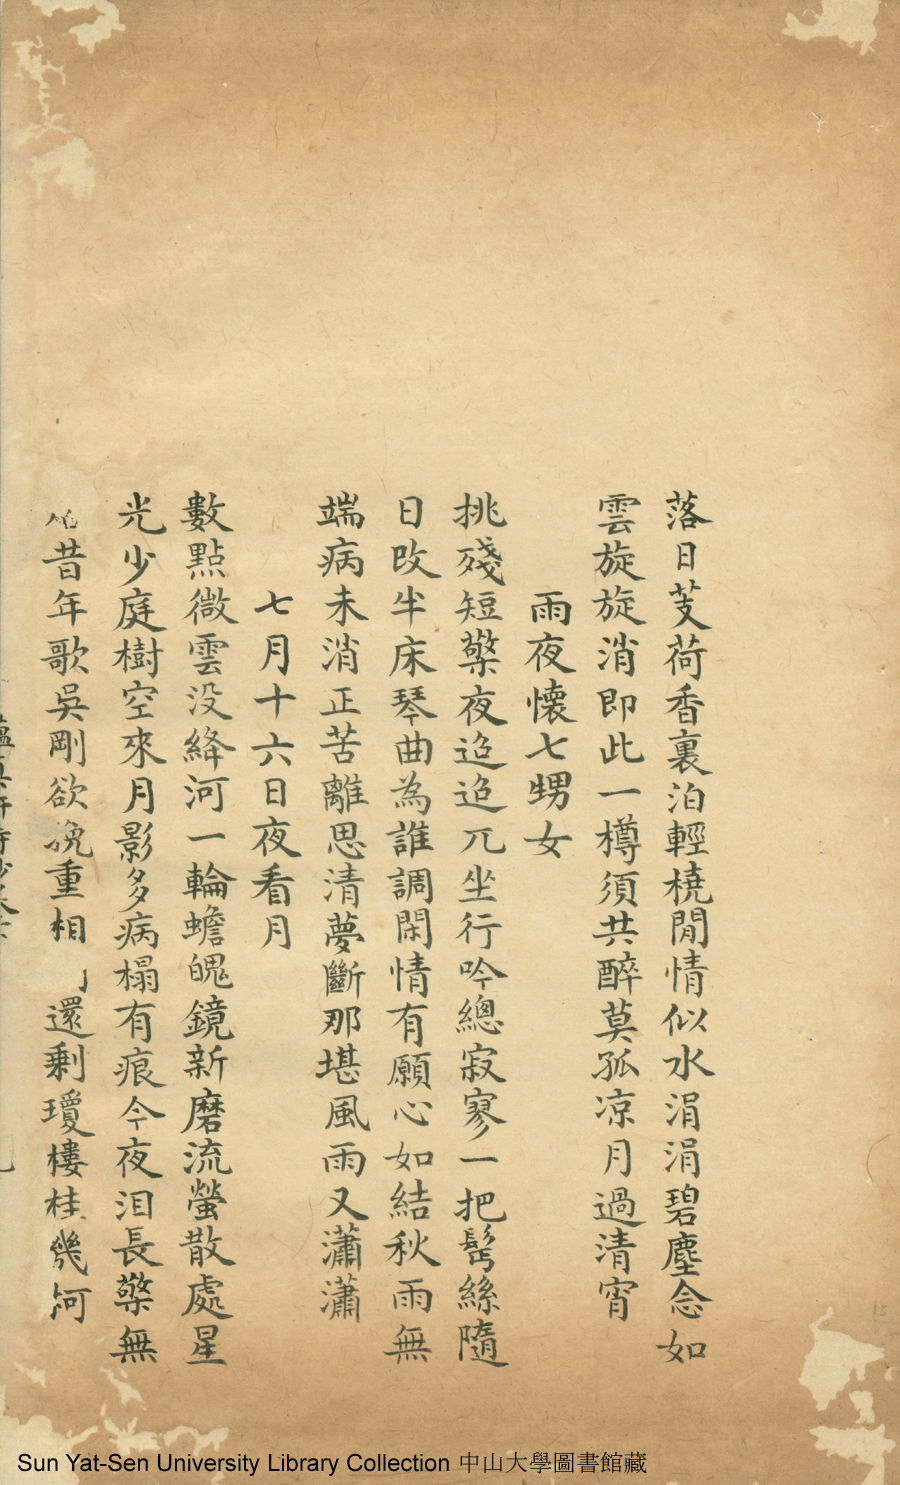 落日芰荷香裏泊輕橈閒情似水涓涓碧塵念如
雲旋旋消即此一樽須共醉莫孤凉月過清宵
雨夜懷七甥女
挑殘短檠夜迢迢兀坐行吟總寂寥一把髩絲隨
日改半床琴曲為誰調閑情有願心如結秋雨無
端病未消正苦離思清夢斷那堪風雨又瀟瀟
七月十六日夜看月
數點微雲没絳河一輪蟾魄鏡新磨流螢散處星
光少庭樹空來月影多病榻有痕今夜泪長檠無
昔年歌吳剛欲挽重相還剩瓊樓桂幾河
Sun Yat-Sen University Library Collection 中山大學圖書館藏